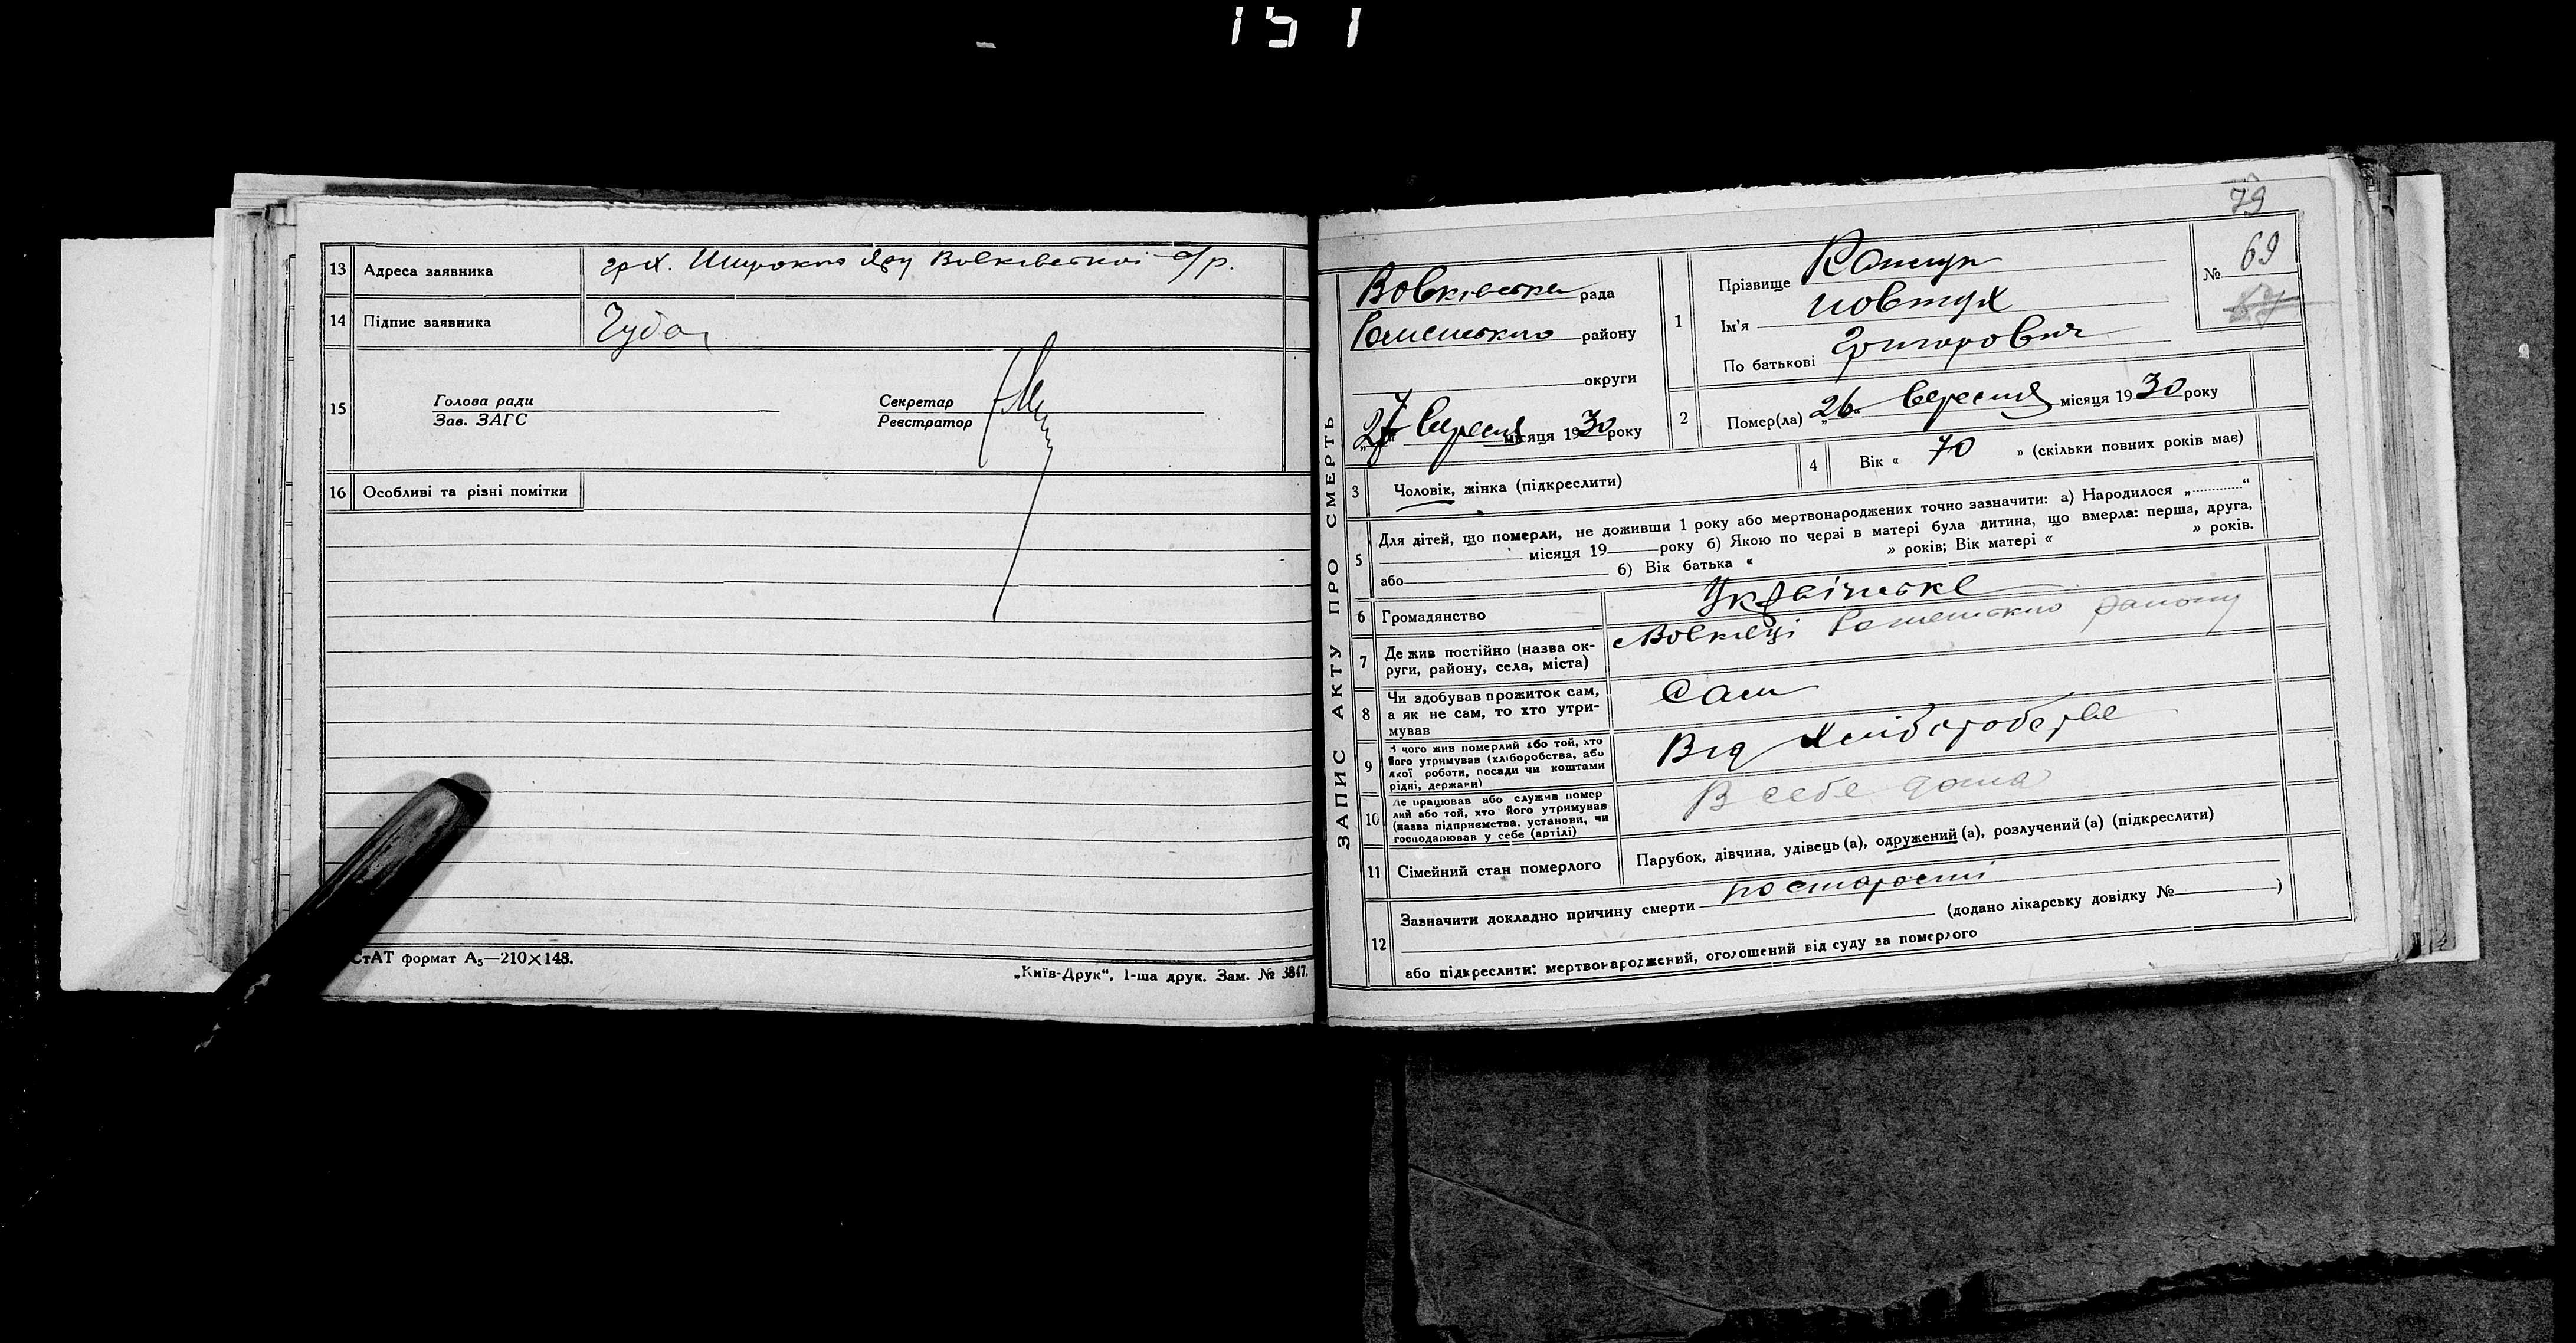 151
13 Адреса заявника грх. Широкого Яру Вовківської с/р.
14 Підпис заявника Чуба
15 Голова ради
Зав. ЗАГС
Секретар
Реєстратор
16 Особливі та різні помітки
СтАТ формат А₅—210×148.
„Київ-Друк“, 1-ша друк. Зам. № 3847.
79
ЗАПИС АКТУ ПРО СМЕРТЬ
Вовківська рада
Роменського району
округи
„27“ Вересня місяця 1930 року
№ 69
1 Прізвище
Ім'я Йовтух
По батькові Григорович
2 Помер(ла) „26“ Вересня місяця 1930 року
3 Чоловік, жінка (підкреслити)
4 Вік « 70 » (скільки повних років має)
5 Для дітей, що померли, не доживши 1 року або мертвонароджених точно зазначити: а) Народилося „............“
місяця 19 року б) Якою по черзі в матері була дитина, що вмерла: перша, друга,
або б) Вік батька « » років; Вік матері « » років.
6 Громадянство Українське
7 Де жив постійно (назва ок-
руги, району, села, міста) Вовківці Роменського району
8 Чи здобував прожиток сам,
а як не сам, то хто утри-
мував Сам
9 З чого жив померлий або той, хто
його утримував (хліборобства, або
якої роботи, посади чи коштами
рідні, держави) Від Хліборобства
10 Де працював або служив помер
лий або той, хто його утримував
(назва підприємства, установи, чи
господарював у себе (артілі) В себе дома
11 Сімейний стан померлого Парубок, дівчина, удівець (а), одружений (а), розлучений (а) (підкреслити)
12 Зазначити докладно причину смерти по старості
(додано лікарську довідку № )
або підкреслити: мертвонароджений, оголошений від суду за померлого